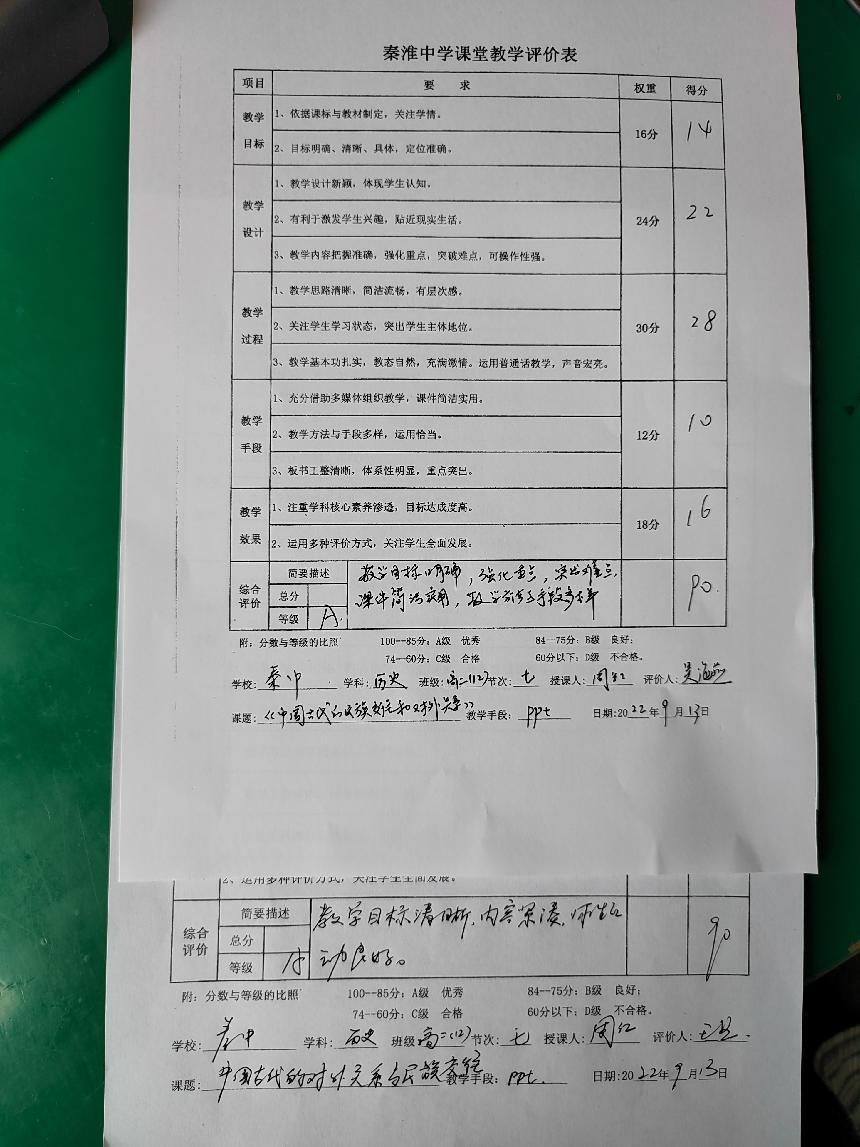 秦淮中学课堂教学评价表
项目 要 求 权重 得分
教学目标 1、依据课标与教材制定，关注学情。 16分 14
2、目标明确、清晰、具体，定位准确。
教学设计 1、教学设计新颖，体现学生认知。 24分 22
2、有利于激发学生兴趣，贴近现实生活。
3、教学内容把握准确，强化重点，突破难点，可操作性强。
教学过程 1、教学思路清晰，简洁流畅，有层次感。 30分 28
2、关注学生学习状态，突出学生主体地位。
3、教学基本功扎实，教态自然，充满激情。运用普通话教学，声音宏亮。
教学手段 1、充分借助多媒体组织教学，课件简洁实用。 12分 10
2、教学方法与手段多样，运用恰当。
3、板书工整清晰，体系性明显，重点突出。
教学效果 1、注重学科核心素养渗透，目标达成度高。 18分 16
2、运用多种评价方式，关注学生全面发展。
综合评价 简要描述 教学目标明确，强化重点，突出难点， 90.
总分 课件简洁实用，教学方法与手段多样
等级 A.
附：分数与等级的比照 100--85分：A级 优秀 84--75分：B级 良好；
74--60分：C级 合格 60分以下：D级 不合格。
学校：秦中 学科：历史 班级：高二(12) 节次：七 授课人：周红 评价人：
课题：《中国古代的民族关系和对外关系》 教学手段：ppt 日期：2022年9月13日
2、运用多种评价方式，关注学生全面发展。
综合评价 简要描述 教学目标清晰，内容紧凑，师生互 90
总分 动良好。
等级 A
附：分数与等级的比照 100--85分：A级 优秀 84--75分：B级 良好；
74--60分：C级 合格 60分以下：D级 不合格。
学校：秦中 学科：历史 班级：高二(12) 节次：七 授课人：周红 评价人：
课题：中国古代的对外关系与民族交往 教学手段：ppt. 日期：2022年9月13日